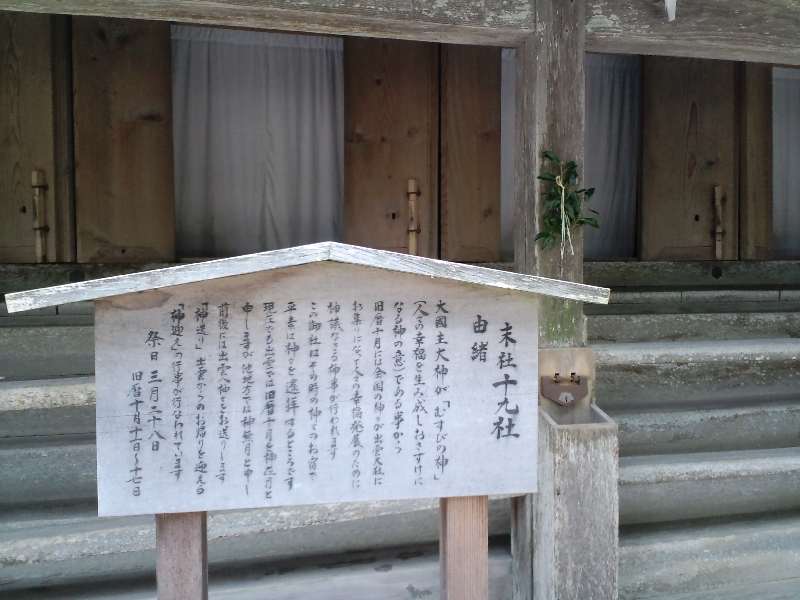 末社十九社
由緒
大國主大神が「むすびの神」
(人々の幸福を生み成しおさずけに
なる神の意)である事から
旧暦十月には全国の神々が出雲大社に
お集りになって人々の幸福発展のために
神議なさる神事が行われます
この御社はその時の神々のお宿で
平素は神々を遥拝するところです
現在でも出雲では旧暦十月を神在月と
申しますが他地方では神無月と申し
前後には出雲へ神々をお送りします
「神送り」出雲からのお帰りを迎える
「神迎え」の行事が行なわれています
祭日 三月二十八日
旧暦十月十一日～十七日